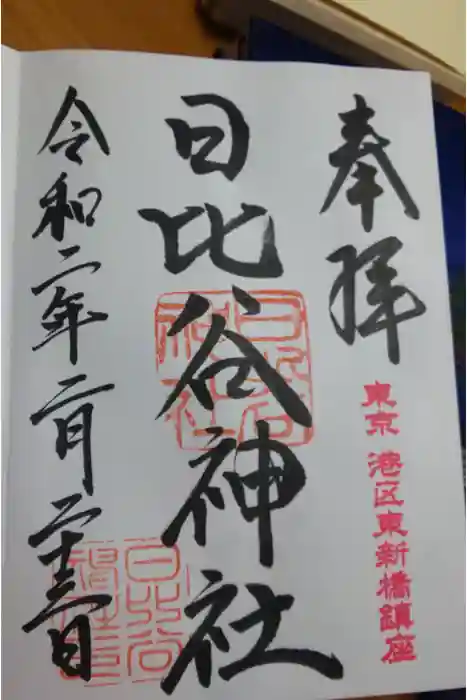 奉拝
東京 港区東新橋鎮座
日比谷神社
日比谷神社
令和二年二月二十三日